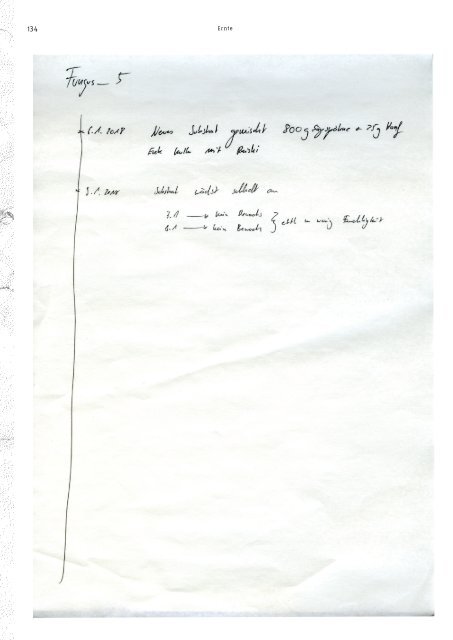 134
Ernte
Fungus_5
6.1.2018 Neues Substrat gemischt 800g Sägespähne + 75g Hanf
mit
9.1.2018 Substrat wächst an
7.1 → kein Bewuchs
8.1 → kein Bewuchs } evtl zu wenig Feuchtigkeit